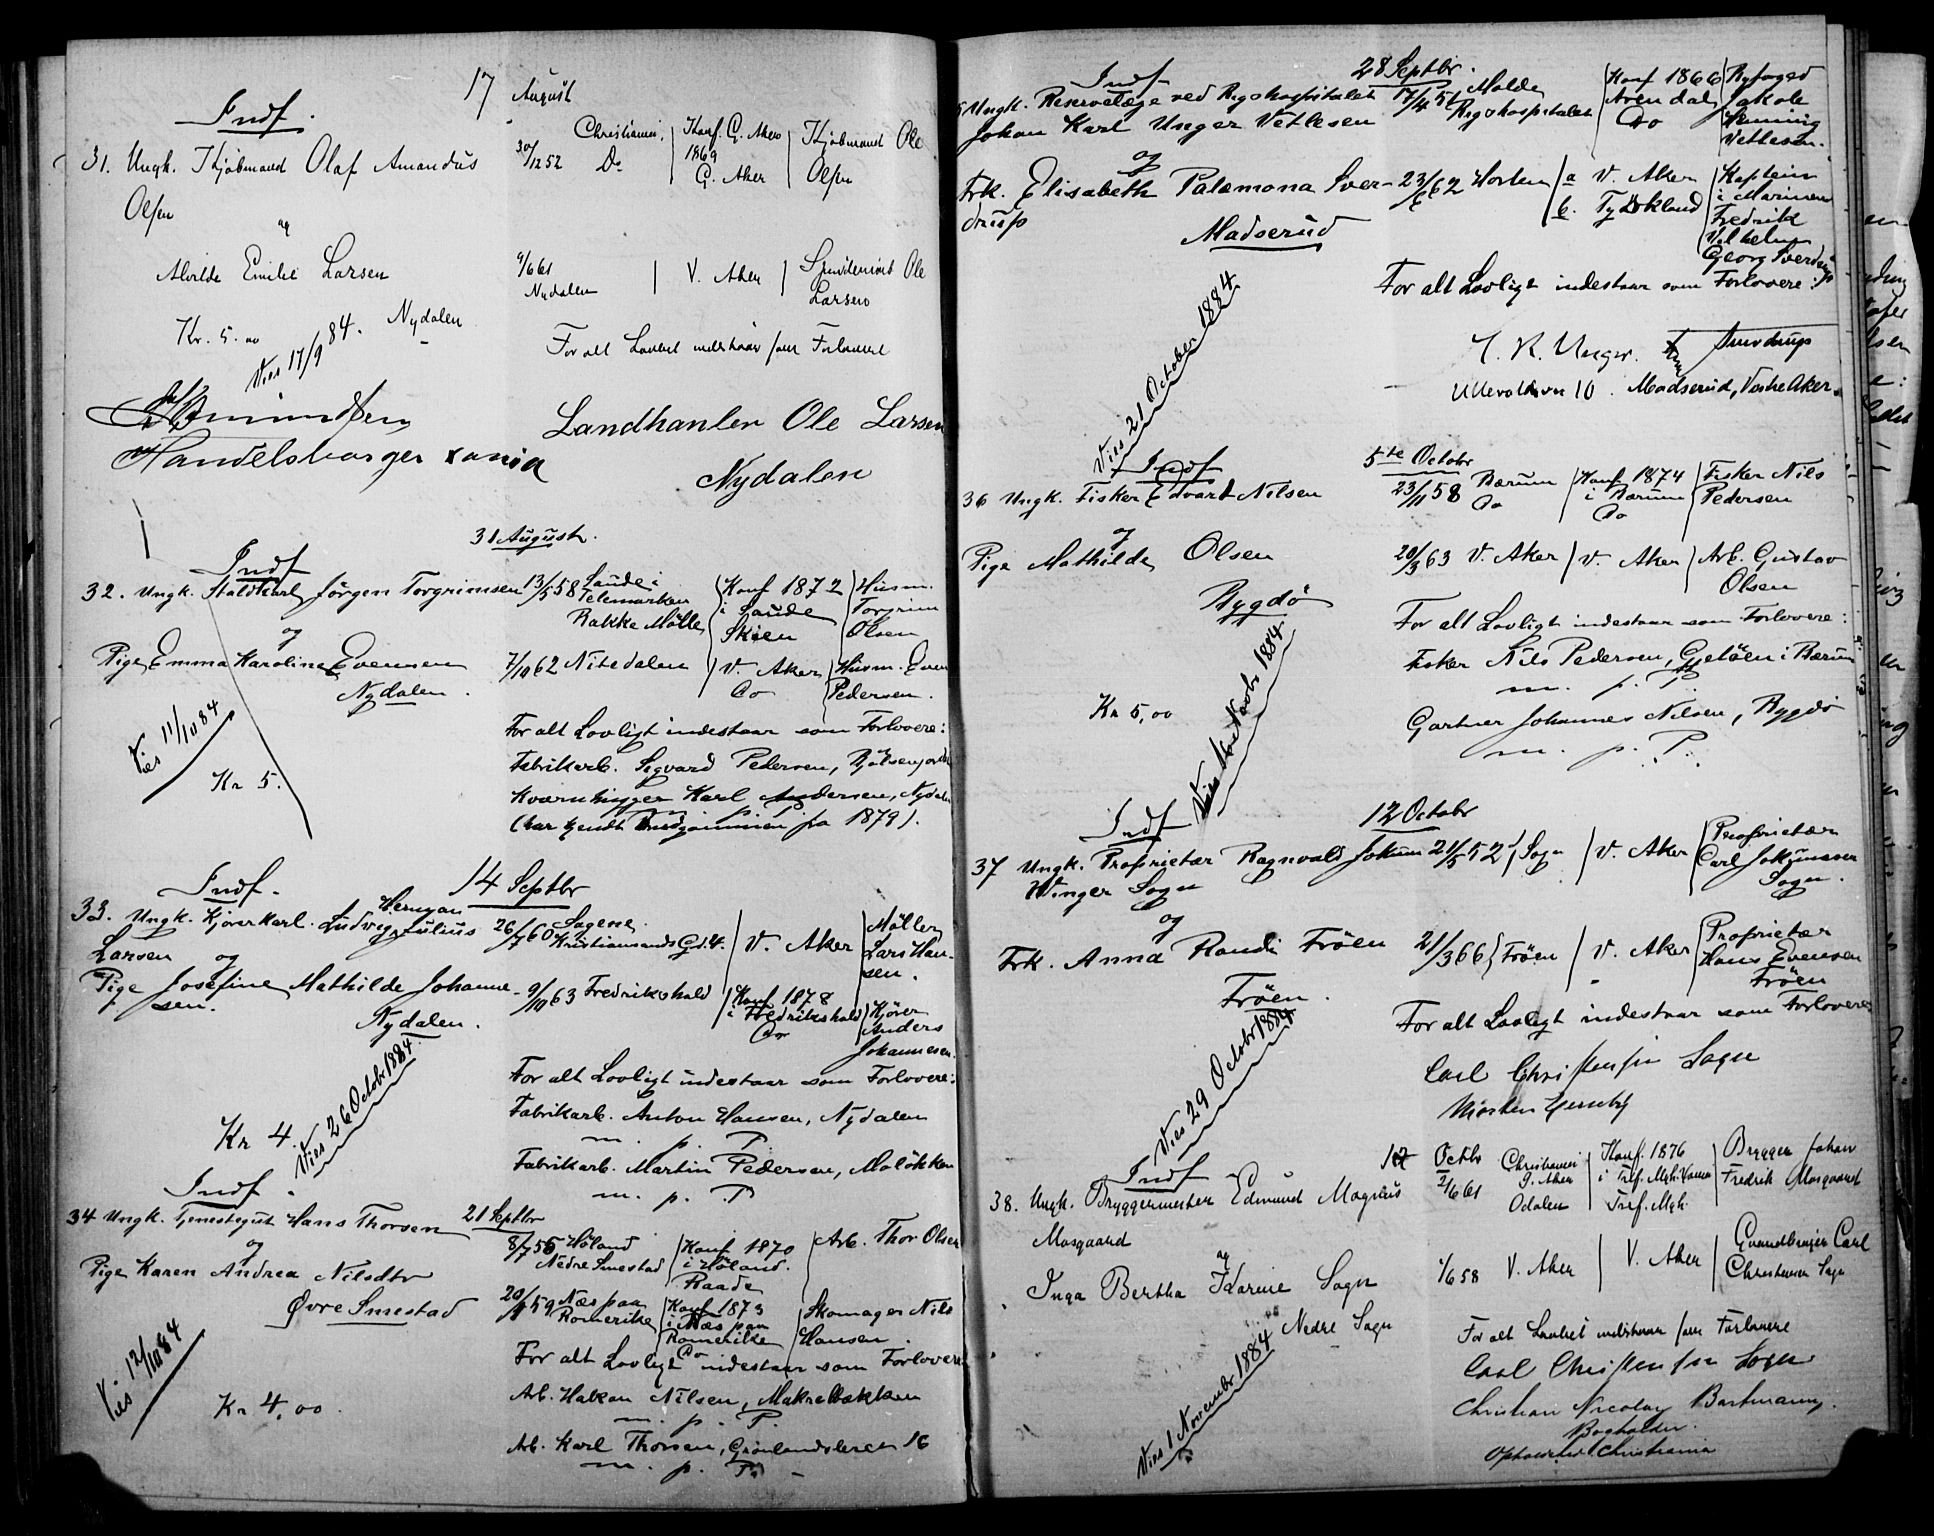 17 August
Indf.
31. Ungk. Kjøbmand Olaf Amandus
Olsen
30/12 52
Christiania,
Do
Konf. G. Aker
1869
G. Aker
Kjøbmand Ole
Olsen
og
Alvilde Emilie Larsen
9/6 61
Nydalen
V. Aker
Ole
Larsen
Kr. 5.00
Nydalen
Viet 17/9 84.
For alt Lovligt indestaar som Forlovere
Amundsen
Handelsborger
Landhanler Ole Larsen
Nydalen
31 August.
Indf
32. Ungk. Staldkarl Jørgen Torgrimsen
13/5 58 Saude i
Telemarken
Bakke Mølle
Konf 1872
i Saude
Skien
Husm.
Torgrim
Olsen
og
Pige Emma Karoline Evensen
Nydalen.
7/10 62 Nitedalen
V. Aker
Do
Husm. Even
Pedersen.
Vies 11/10 84
Kr 5.
For alt Lovligt indestaar som Forlovere:
Fabrikarb. Sigvard Pedersen,
Karl Andersen, Nydalen
m. p. P.
(har kendt fra 1879).
14 Septbr
Indf.
33. Ungk. Kjørerkarl. Ludvig Herman Julius
Larsen
og
26/7 60 Sagene.
Kristiansands Gd. 4.
V. Aker
Møller
Lars Han-
sen.
Pige Josefine Mathilde Johanne-
sen.
Nydalen.
9/10 63 Fredrikshald
Konf 1878
i Fredrikshald
Do
Kjører
Anders
Johannesen.
Kr 4.
Vies 26 Octobr 1884.
For alt Lovligt indestaar som Forlovere:
Fabrikarb. Anton Hansen, Nydalen
m. p. P.
Fabrikarb. Martin Pedersen, Moløkken
m. p. P
Indf.
21 Septbr
34 Ungk. Tjenestegut Hans Thorsen
8/7 55 Høland
Nedre Smestad
Konf 1870
i Høland.
Raade
Arb. Thor Olsen
og
Pige Karen Andrea Nilsdtr
Øvre Smestad
59 Næs paa
Romerike
Konf 1873
i Næs paa
Romerike
Do
Skomager Nils
Hansen.
Vies 12/10 84
Kr 4,00
For alt Lovligt indestaar som Forlovere
Arb. Hakon Nilsen, Makrelbækken
m. p. P.
Arb. Karl Thorsen, Grønlandsleret 16
m. p. P.
28 Septbr.
Indf
Ungk. Reservelæge ved Rigshospitalet
Johan Karl Unger Vetlesen
17/4 51 Molde
Rigshospitalet
Konf 1866
Arendal
Do
Byfoged
Jakob
Henning
Vetlesen.
og
Frk. Elisabeth Palæmona Sver-
drup
Madserud
23/6 62 Horten
a V. Aker
b. Tydskland
Kaptein
i Marinen
Fredrik
Vilhelm
Georg Sverdrup
For alt Lovligt indestaar som Forlovere:
Unger. Sverdrup
Ullevoldsvn 10. Madserud, Vestre Aker.
Vies 21 October 1884
Indf
5te Octobr
36 Ungk. Fisker Edvart Nilsen
23/11 58 Bærum
Do
Konf 1874
i Bærum
Do
Fisker Nils
Pedersen
og
Pige Mathilde Olsen
Bygdø
20/3 63 V. Aker
V. Aker
Arb. Gustav
Olsen
For alt Lovligt indestaar som Forlovere:
Fisker Nils Pedersen, Gjetøen i Bærum
m. p. P.
Gartner Johannes Nilsen, Bygdø
m. p. P.
Kr 5,00
Novbr 1884.
Indf
12 Octobr
37 Ungk. Proprietær Ragnvald Jokum
Winger Sogn
21/5 52 Sogn
V. Aker
Proprietær
Carl Jokumsen
Sogn.
og
Frk. Anna Randi Frøen
Frøen.
21/3 66 Frøen
V. Aker
Proprietær
Hans Evensen
Frøen
For alt Lovligt indestaar som Forlovere
Carl Christensen Sogn
Morten
Vies 29 Octobr 1884
Indf
Octbr
38. Ungk. Bryggermester Edmund Magnus
Mosgaard
2/6 61
Christiania
G. Aker
Odalen
Konf. 1876
i Tref. Mgh.
Tref. Mgh.
Brygger Johan
Fredrik Mosgaard
og
Inga Bertha Karine Sogn
Nedre Sogn
1/6 58 V. Aker
V. Aker
Gaardbruger Carl
Christensen Sogn
For alt Lovligt indestaar som Forlovere
Carl Christensen Sogn
Christian Nicolay
Bogholder.
Christiania
Vies 1 November 1884